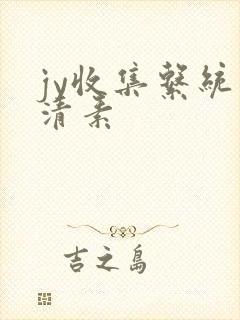 jy收集繫統
清素
吉之島